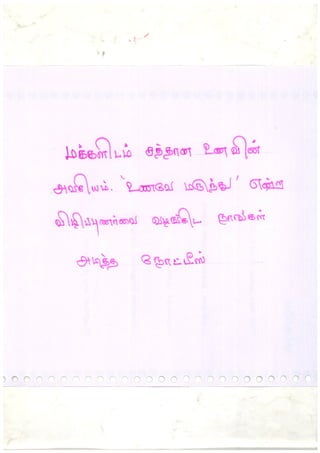 மக்களிடம் சத்தான உணவின்
அவசியம். 'உணவே மருந்து' என்ற
விழிப்புணர்வை வழங்கிட நாங்கள்
அடித்த நோட்டீஸ்